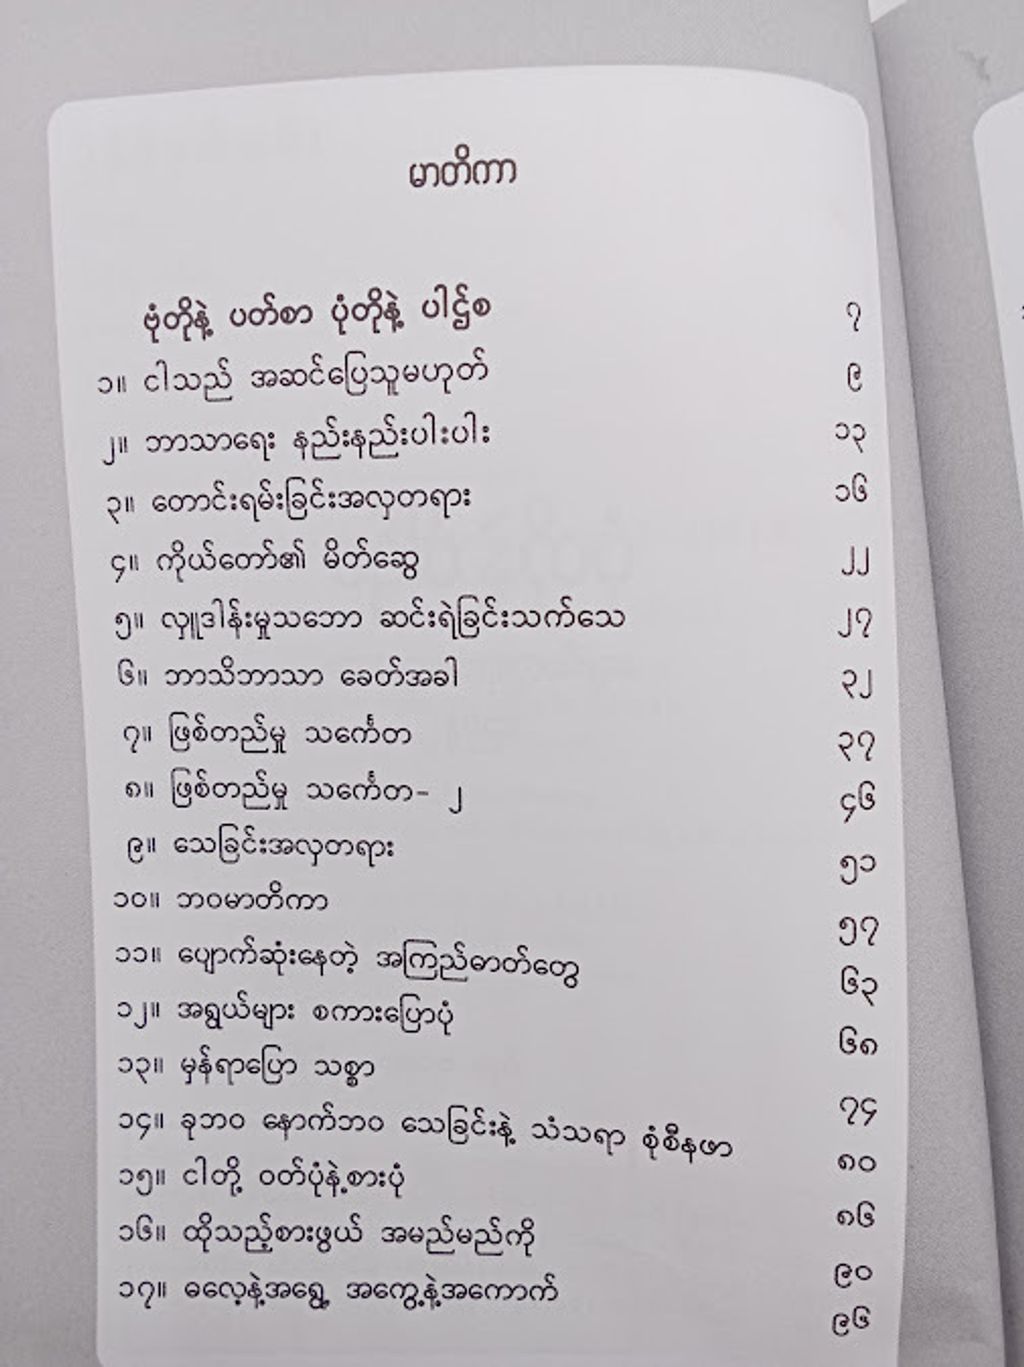 မာတိကာ
ဗုံတိုနဲ့ ပတ်စာ ပုံတိုနဲ့ ပါဌ်စ ၇
၁။ ငါသည် အဆင်ပြေသူမဟုတ် ၉
၂။ ဘာသာရေး နည်းနည်းပါးပါး ၁၃
၃။ တောင်းရမ်းခြင်းအလှတရား ၁၆
၄။ ကိုယ်တော်၏ မိတ်ဆွေ ၂၂
၅။ လှူဒါန်းမှုသဘော ဆင်းရဲခြင်းသက်သေ ၂၇
၆။ ဘာသိဘာသာ ခေတ်အခါ ၃၂
၇။ ဖြစ်တည်မှု သင်္ကေတ ၃၇
၈။ ဖြစ်တည်မှု သင်္ကေတ- ၂ ၄၆
၉။ သေခြင်းအလှတရား ၅၁
၁၀။ ဘဝမာတိကာ ၅၇
၁၁။ ပျောက်ဆုံးနေတဲ့ အကြည်ဓာတ်တွေ ၆၃
၁၂။ အရွယ်များ စကားပြောပုံ ၆၈
၁၃။ မှန်ရာပြော သစ္စာ ၇၄
၁၄။ ခုဘဝ နောက်ဘဝ သေခြင်းနဲ့ သံသရာ စုံစီနဖာ ၈၀
၁၅။ ငါတို့ ဝတ်ပုံနဲ့စားပုံ ၈၆
၁၆။ ထိုသည့်စားဖွယ် အမည်မည်ကို ၉၀
၁၇။ ဓလေ့နဲ့အရွေ့ အကွေ့နဲ့အကောက် ၉၆